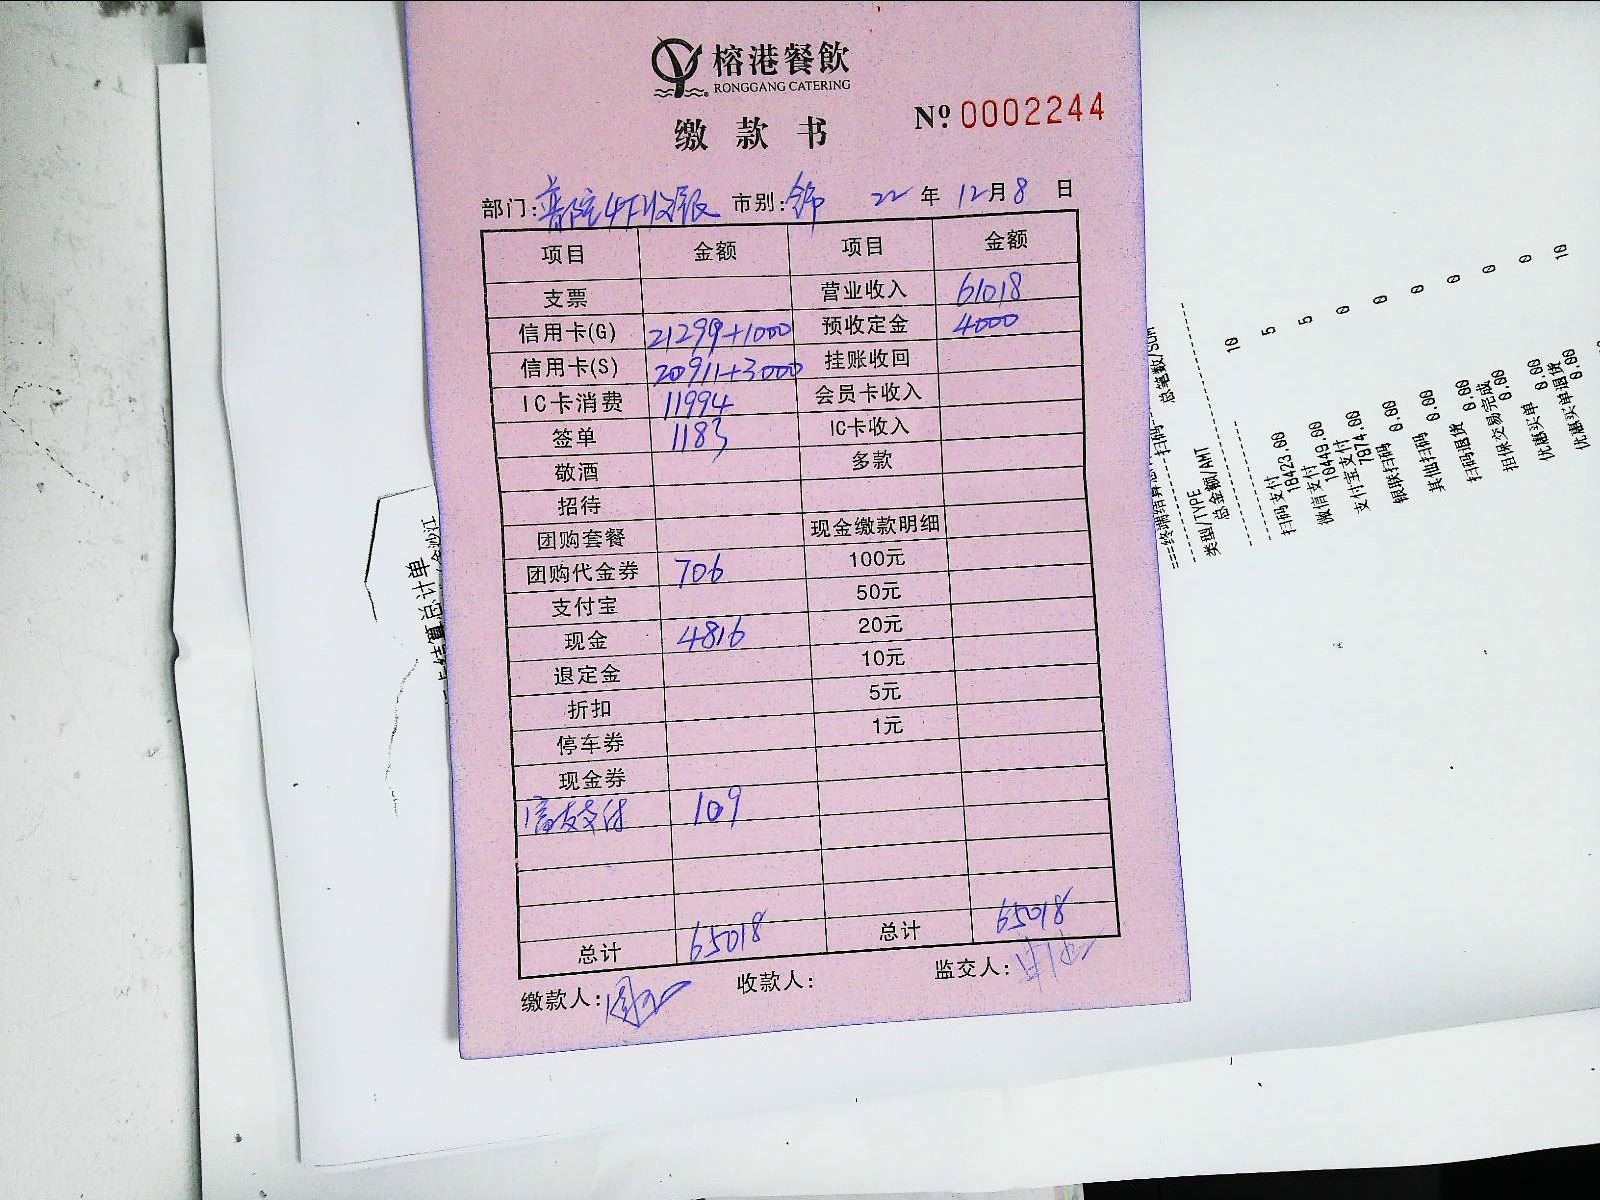 榕港餐飲
RONGGANG CATERING
缴款书
Nº 0002244
部门:普陀4F收银 市别: 22年12月8日
项目 金额 项目 金额
支票 营业收入 61018
信用卡(G) 21299+1000 预收定金 4000
信用卡(S) 20911+3000 挂账收回
IC卡消费 11994 会员卡收入
签单 1183 IC卡收入
敬酒 多款
招待
团购套餐 现金缴款明细
团购代金券 706 100元
支付宝 50元
现金 4816 20元
退定金 10元
折扣 5元
停车券 1元
现金券
支付 109
总计 65018 总计 65018
缴款人: 收款人: 监交人:
结算总计单
金沙江
类型/TYPE 总笔数/SUM
总金额/AMT
扫码支付 10
18423.00
微信支付 5
10449.00
支付宝支付 5
7974.00
银联扫码 0
0.00
其他扫码 0
0.00
扫码退货 0
0.00
担保交易完成 0
0.00
优惠买单 0
0.00
优惠买单退货 0
0.00
10